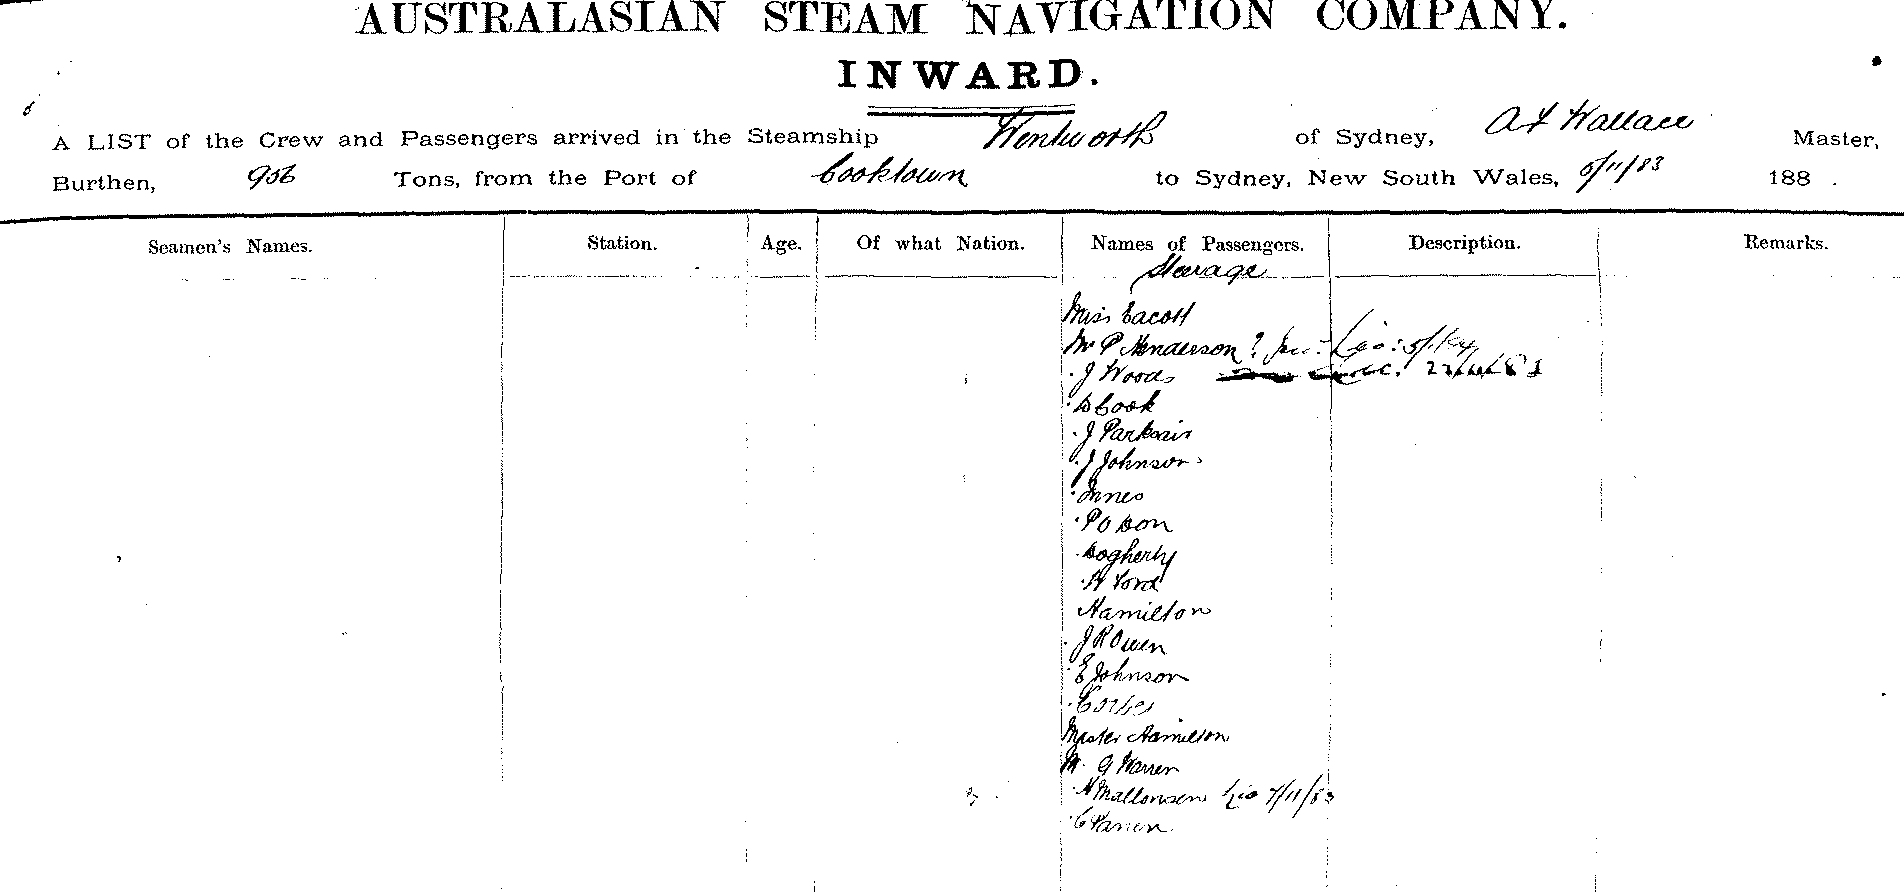 AUSTRALASIAN STEAM NAVIGATION COMPANY.
INWARD.
A LIST of the Crew and Passengers arrived in the Steamship Wentworth of Sydney, Wallace Master,
Burthen, 956 Tons, from the Port of Cooktown to Sydney, New South Wales, 5/11/83 188 .
Seamen's Names. Station. Age. Of what Nation. Names of Passengers. Description. Remarks.
Steerage
Miss Eacott
Mr P Henderson ?
J Woods
D Cook
J
J Johnson
Innes
Dogherty
Hamilton
J R Owen
E Johnson
Master Hamilton
M. G Warren
H 7/11/83
C